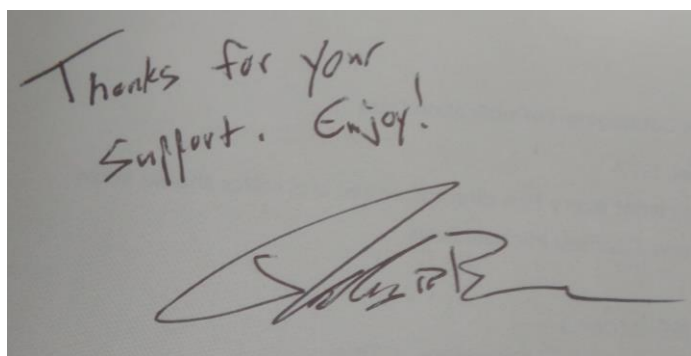 Thanks for your
Support. Enjoy!